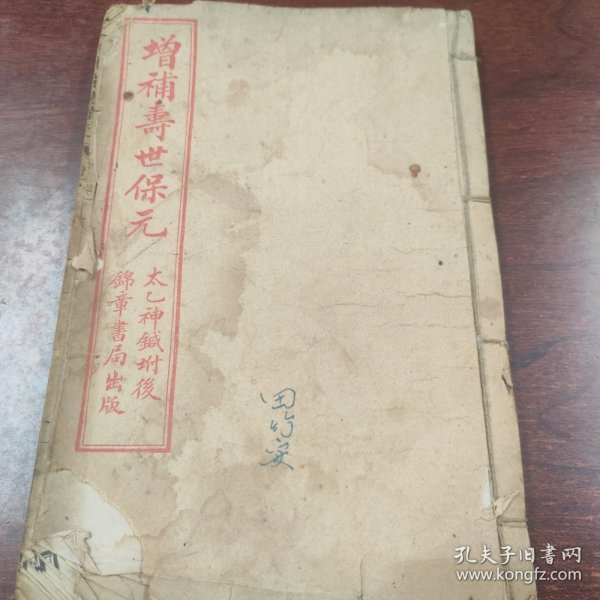 增補壽世保元
太乙神鍼坿後
錦章書局出版
田竹安
孔夫子旧書网
www.kongfz.com